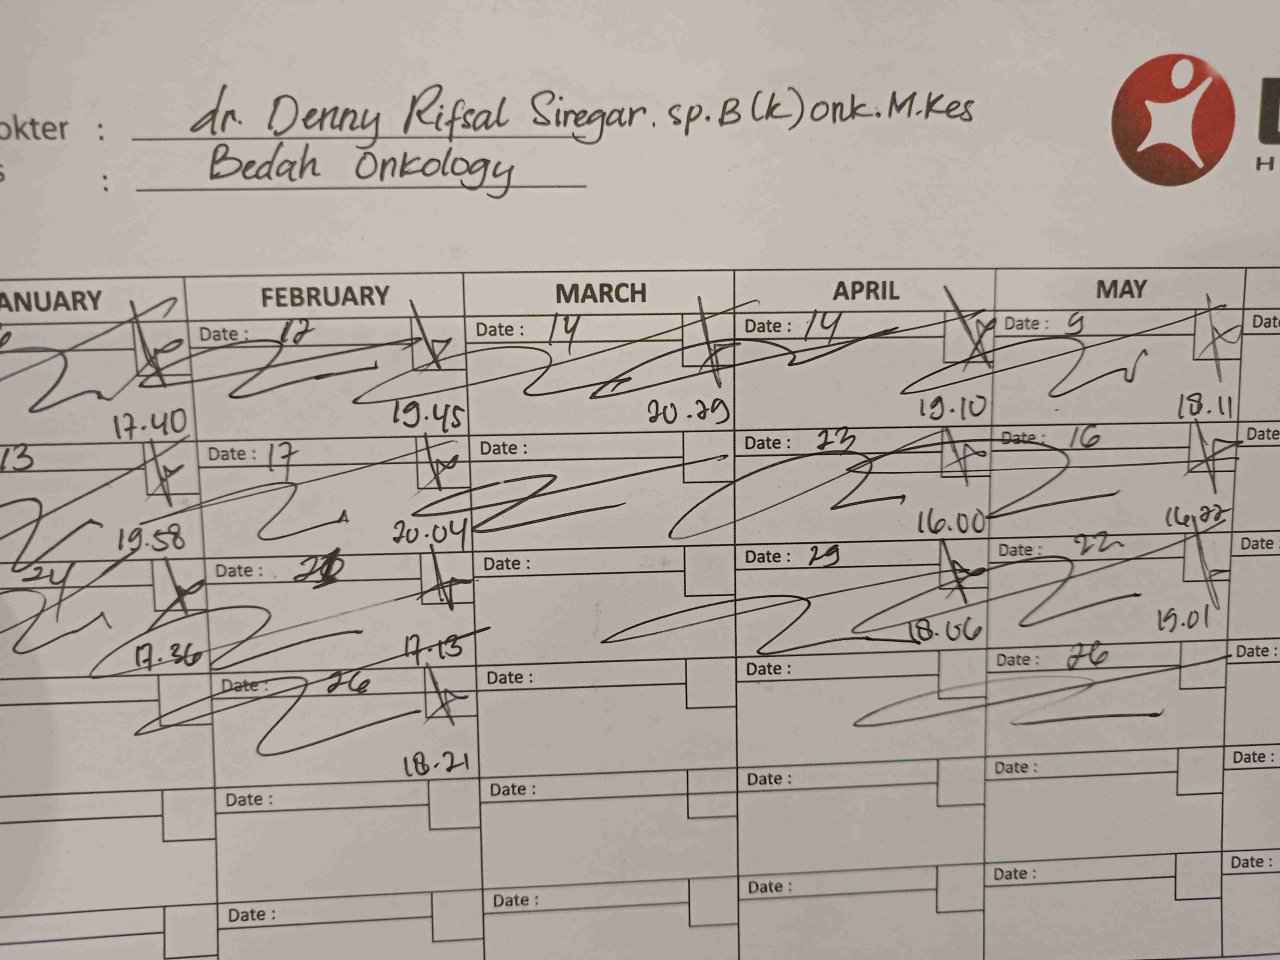 okter : dr. Denny Rifsal Siregar. sp.B(k)onk.M.Kes
s : Bedah Onkology
H
ANUARY FEBRUARY MARCH APRIL MAY
Date : 12 Date : 14 Date : 14 Date : 9 Date
17.40 19.45 20.29 19.10 18.11
13 Date : 17 Date : Date : 23 Date : 16 Date
19.58 20.04 16.00 16.22
24 Date : Date : Date : 29 Date : 22 Date :
17.36 17.13 18.06 19.01
Date : 26 Date : Date : Date : 26 Date :
18.21
Date : Date : Date : Date : Date :
Date : Date : Date : Date : Date :